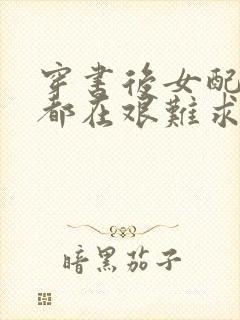 穿書後女配
都在艱難求
暗黑茄子